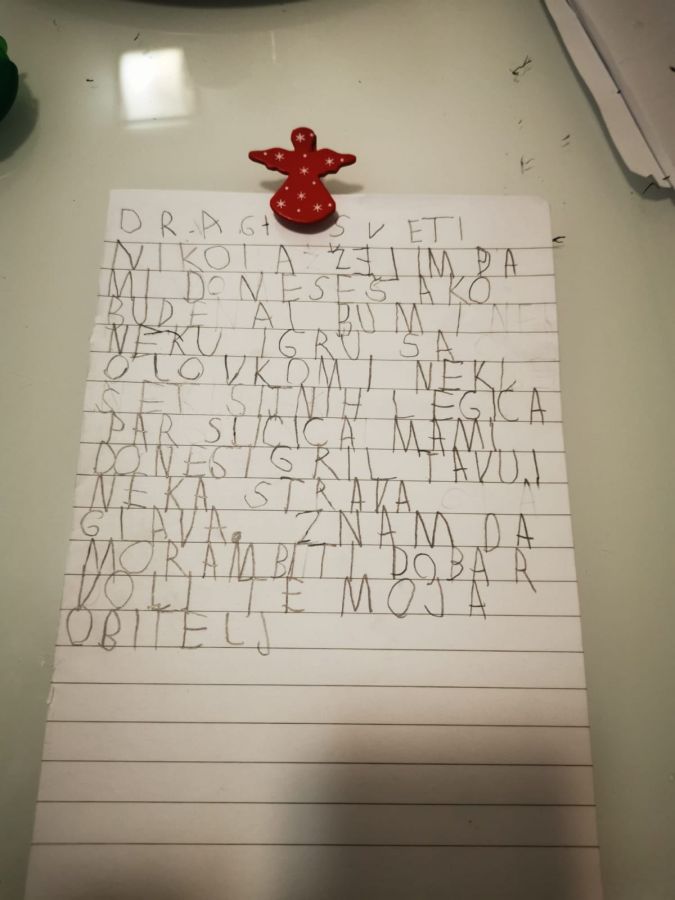 DRAGI SVETI
NIKOLA ŽELIM DA
MI DONESEŠ AKO
BUDE ALBUM I
NEKU IGRU SA
OLOVKOM I NEKI
SET SITNIH LEGICA
PAR SLICICA MAMI
DONESI GRIL TAVU I
NEKA STRAVA
GLAVA. ZNAM DA
MORAM BITI DOBAR
VOLI TE MOJA
OBITELJ